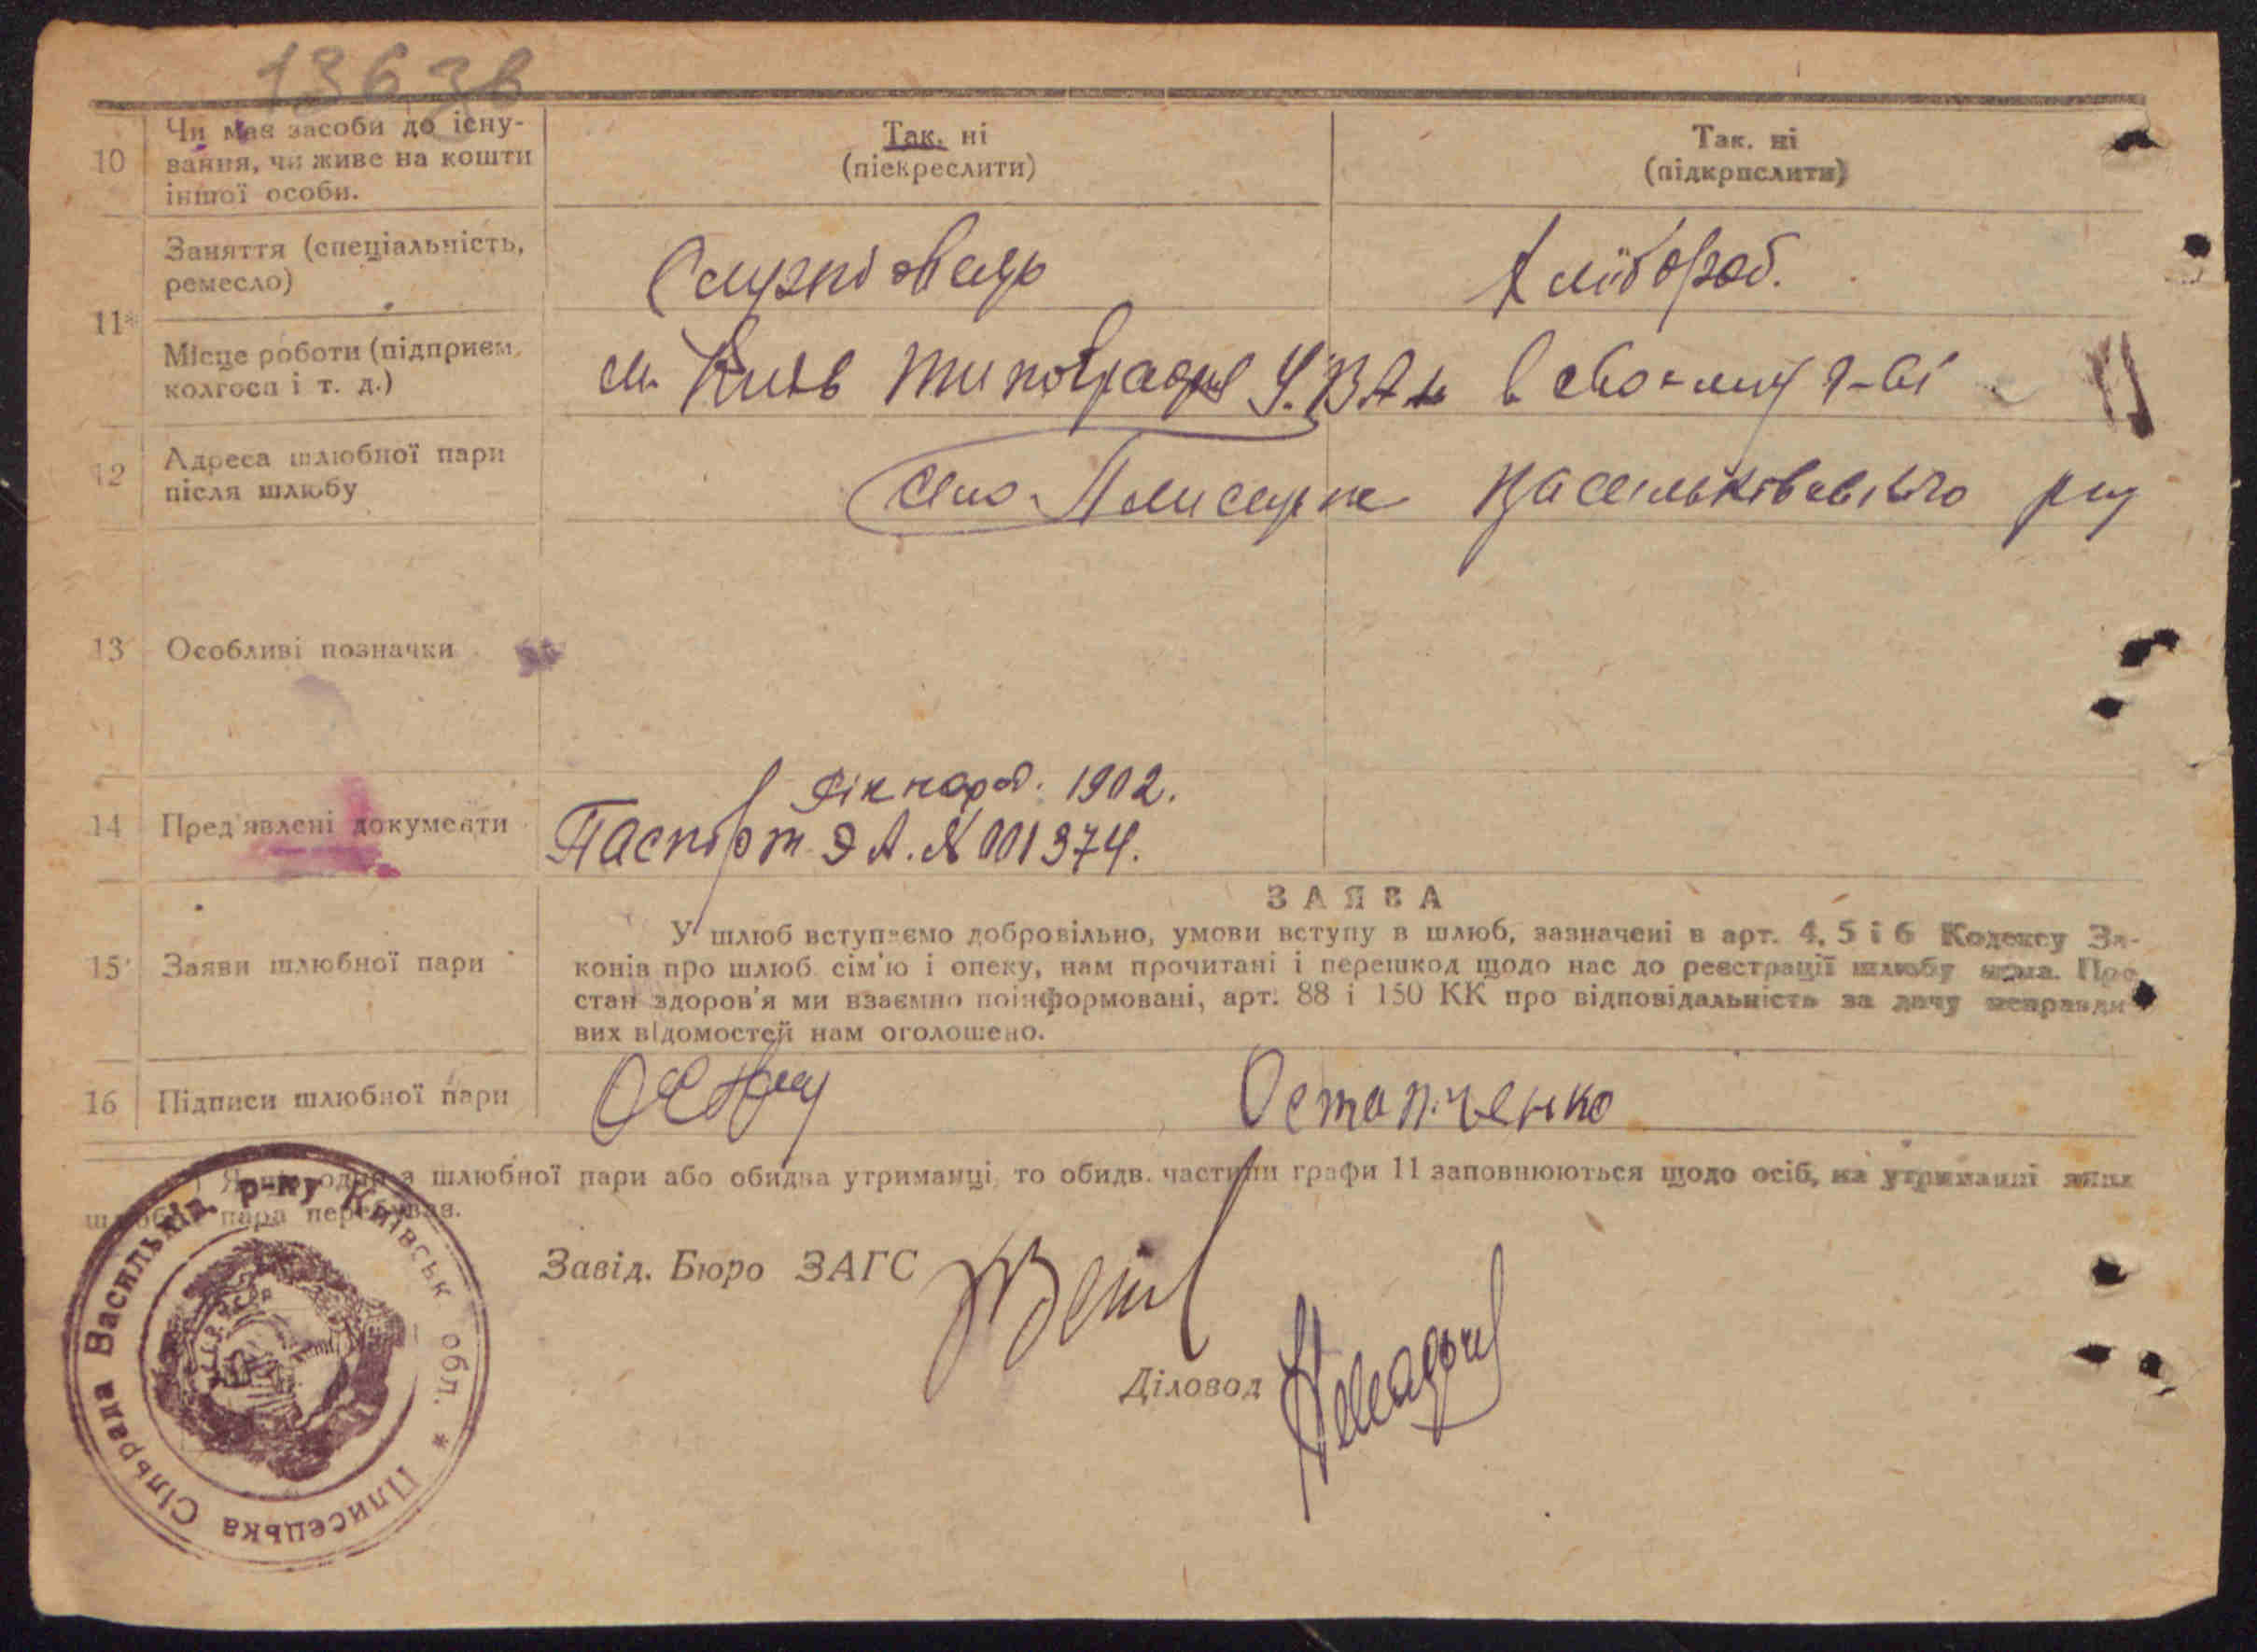 1363в
10 Чи має засоби до існу-
вання, чи живе на кошти
іншої особи.
Так, ні
(піекреслити)
Так. ні
(підкрпслити)
11* Заняття (спеціальність,
ремесло)
Службовець
Хлібороб.
Місце роботи (підприєм,
колгосп і т. д.)
м. Київ типографія
в своєму г-ві
12 Адреса шлюбної пари
після шлюбу
село Плисецьке Васильківського р-ну
13 Особливі позначки
14 Пред'явлені документи
Рік народ. 1902.
Паспорт ЭА. № 001374.
ЗАЯВА
15 Заяви шлюбної пари
У шлюб вступаємо добровільно, умови вступу в шлюб, зазначені в арт. 4, 5 і 6 Кодексу За-
конів про шлюб сім'ю і опеку, нам прочитані і перешкод щодо нас до реєстрації шлюбу нема. Про
стан здоров'я ми взаємно поінформовані, арт. 88 і 150 КК про відповідальність за дачу неправди
вих відомостей нам оголошено.
16 Підписи шлюбної пари
Остапченко
) Якщо одно з шлюбної пари або обидва утриманці, то обидв. частини графи 11 заповнюються щодо осіб, на утриманні яких
шлюбна пара перебуває.
Завід. Бюро ЗАГС
Діловод
Плисецька Сільрада Васильків. р-ну Київськ. обл. *